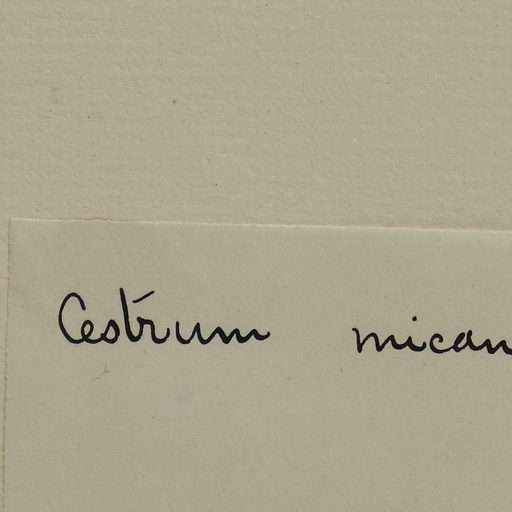 Cestrum mican